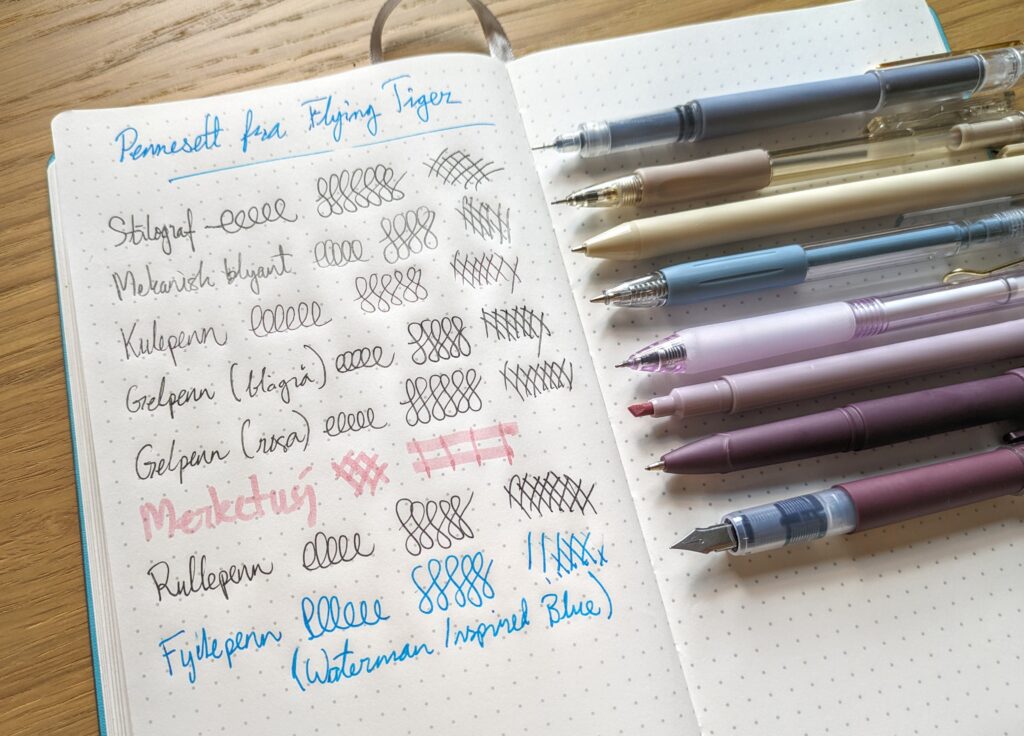 Pennesett fra Flying Tiger
Stilograf
Mekanisk blyant
Kulepenn
Gelpenn (blågrå)
Gelpenn (rosa)
Merketusj
Rullepenn
Fyllepenn
(Waterman Inspired Blue)